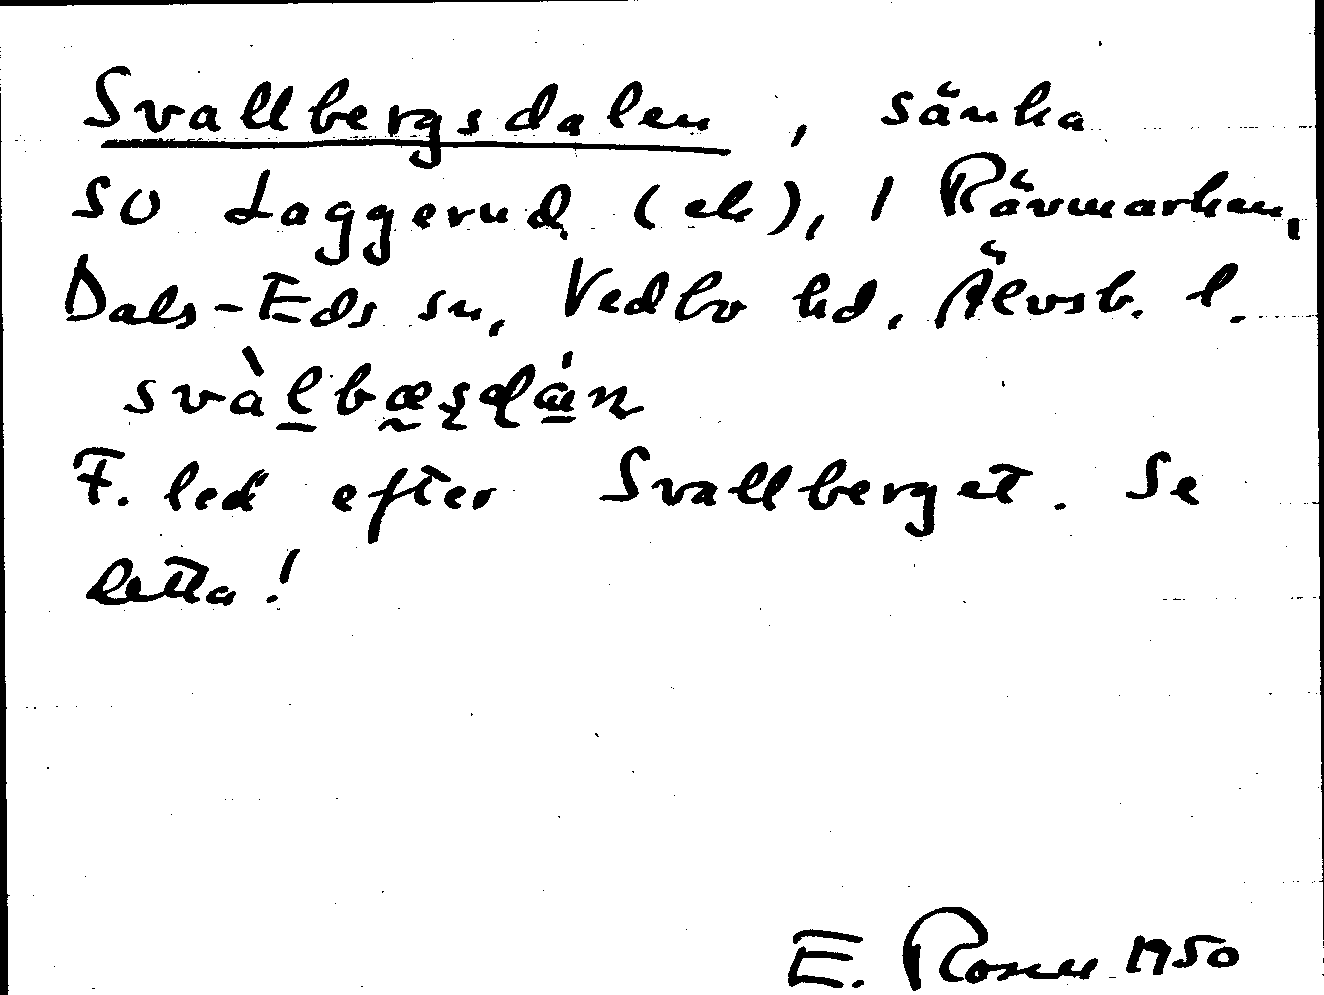 Svallbergsdalen, sänka
SO Laggerud (ek), 1 Rävmarken,
Dals-Eds sn, Vedbo hd, Älvsb. l.
F. led efter Svallberget. Se
detta!
E. Rosell 1950